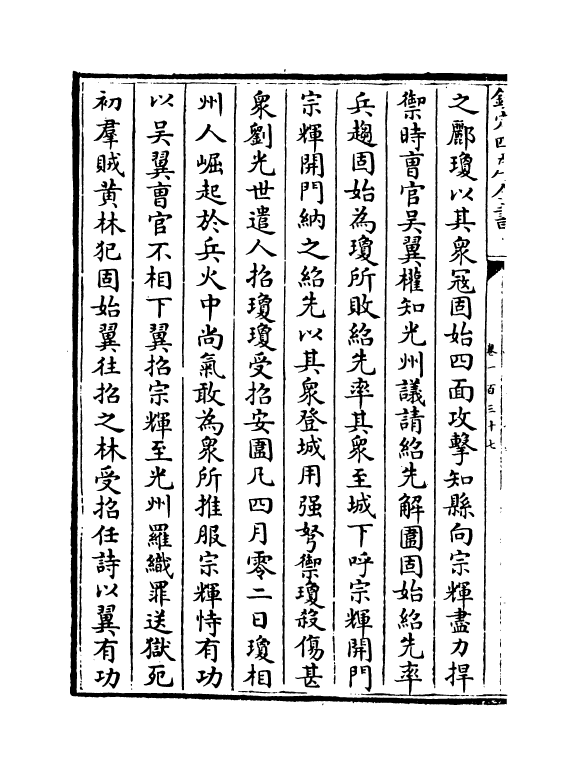 欽定四庫全書
卷一百三十七
之酈瓊以其衆冦固始四面攻擊知縣向宗輝盡力捍
禦時曺官吳翼權知光州議請紹先解圍固始紹先率
兵趨固始為瓊所敗紹先率其衆至城下呼宗輝開門
宗輝開門納之紹先以其衆登城用强弩禦瓊殺傷甚
衆劉光世遣人招瓊瓊受招安圍凡四月零二日瓊相
州人崛起於兵火中尚氣敢為衆所推服宗輝恃有功
以吳翼曺官不相下翼招宗輝至光州羅織罪送獄死
初羣賊黄林犯固始翼往招之林受招任詩以翼有功